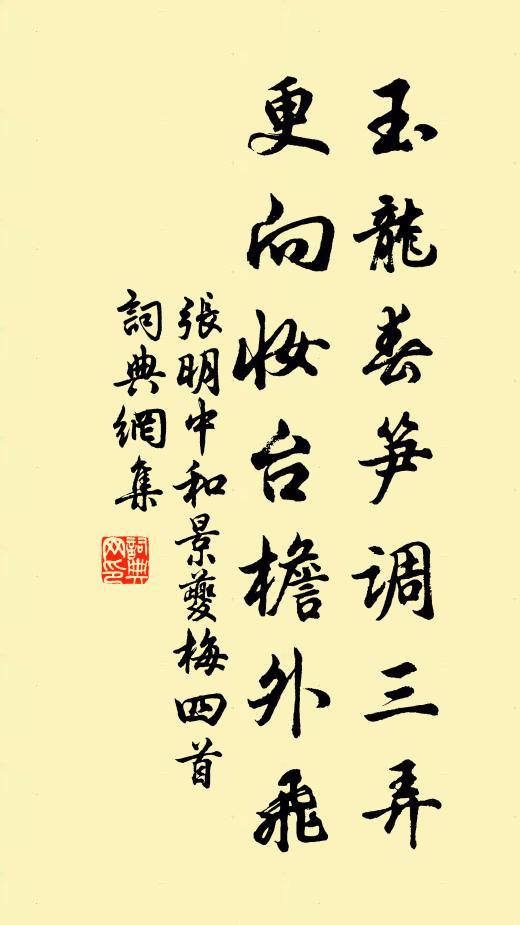 玉龍春笋调三弄
更向妆台檐外飛
張明中和景夔梅四首
詞典網集
詞典
网印